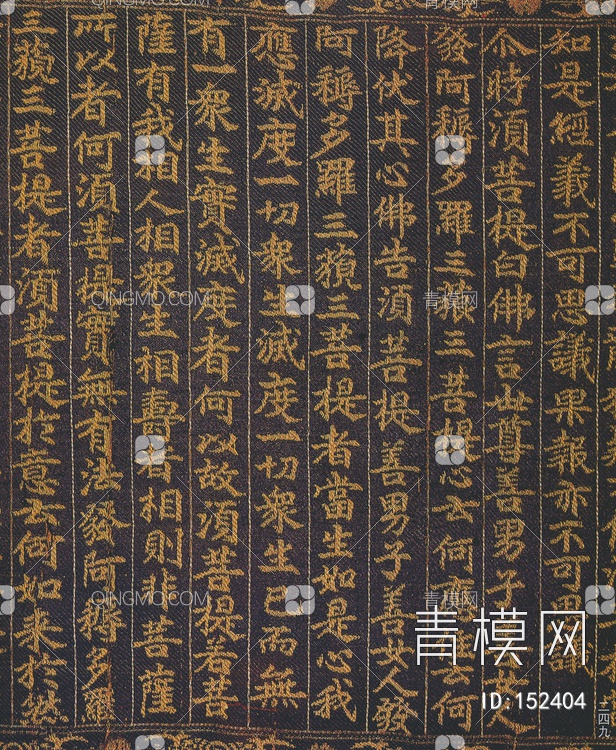 知是經義不可思議果報亦不可思議
尒時須菩提白佛言世尊善男子善女人
發阿耨多羅三藐三菩提心云何應住云何
降伏其心佛告須菩提善男子善女人發
阿耨多羅三藐三菩提者當生如是心我
應滅度一切衆生滅度一切衆生已而無
有一衆生實滅度者何以故須菩提若菩
薩有我相人相衆生相壽者相則非菩薩
所以者何須菩提實無有法發阿耨多羅
三藐三菩提者須菩提於意云何如来於然
青模网
ID:152404
一四九
QINGMO.COM
青模网
QINGMO.COM
青模网
QINGMO.COM
青模网